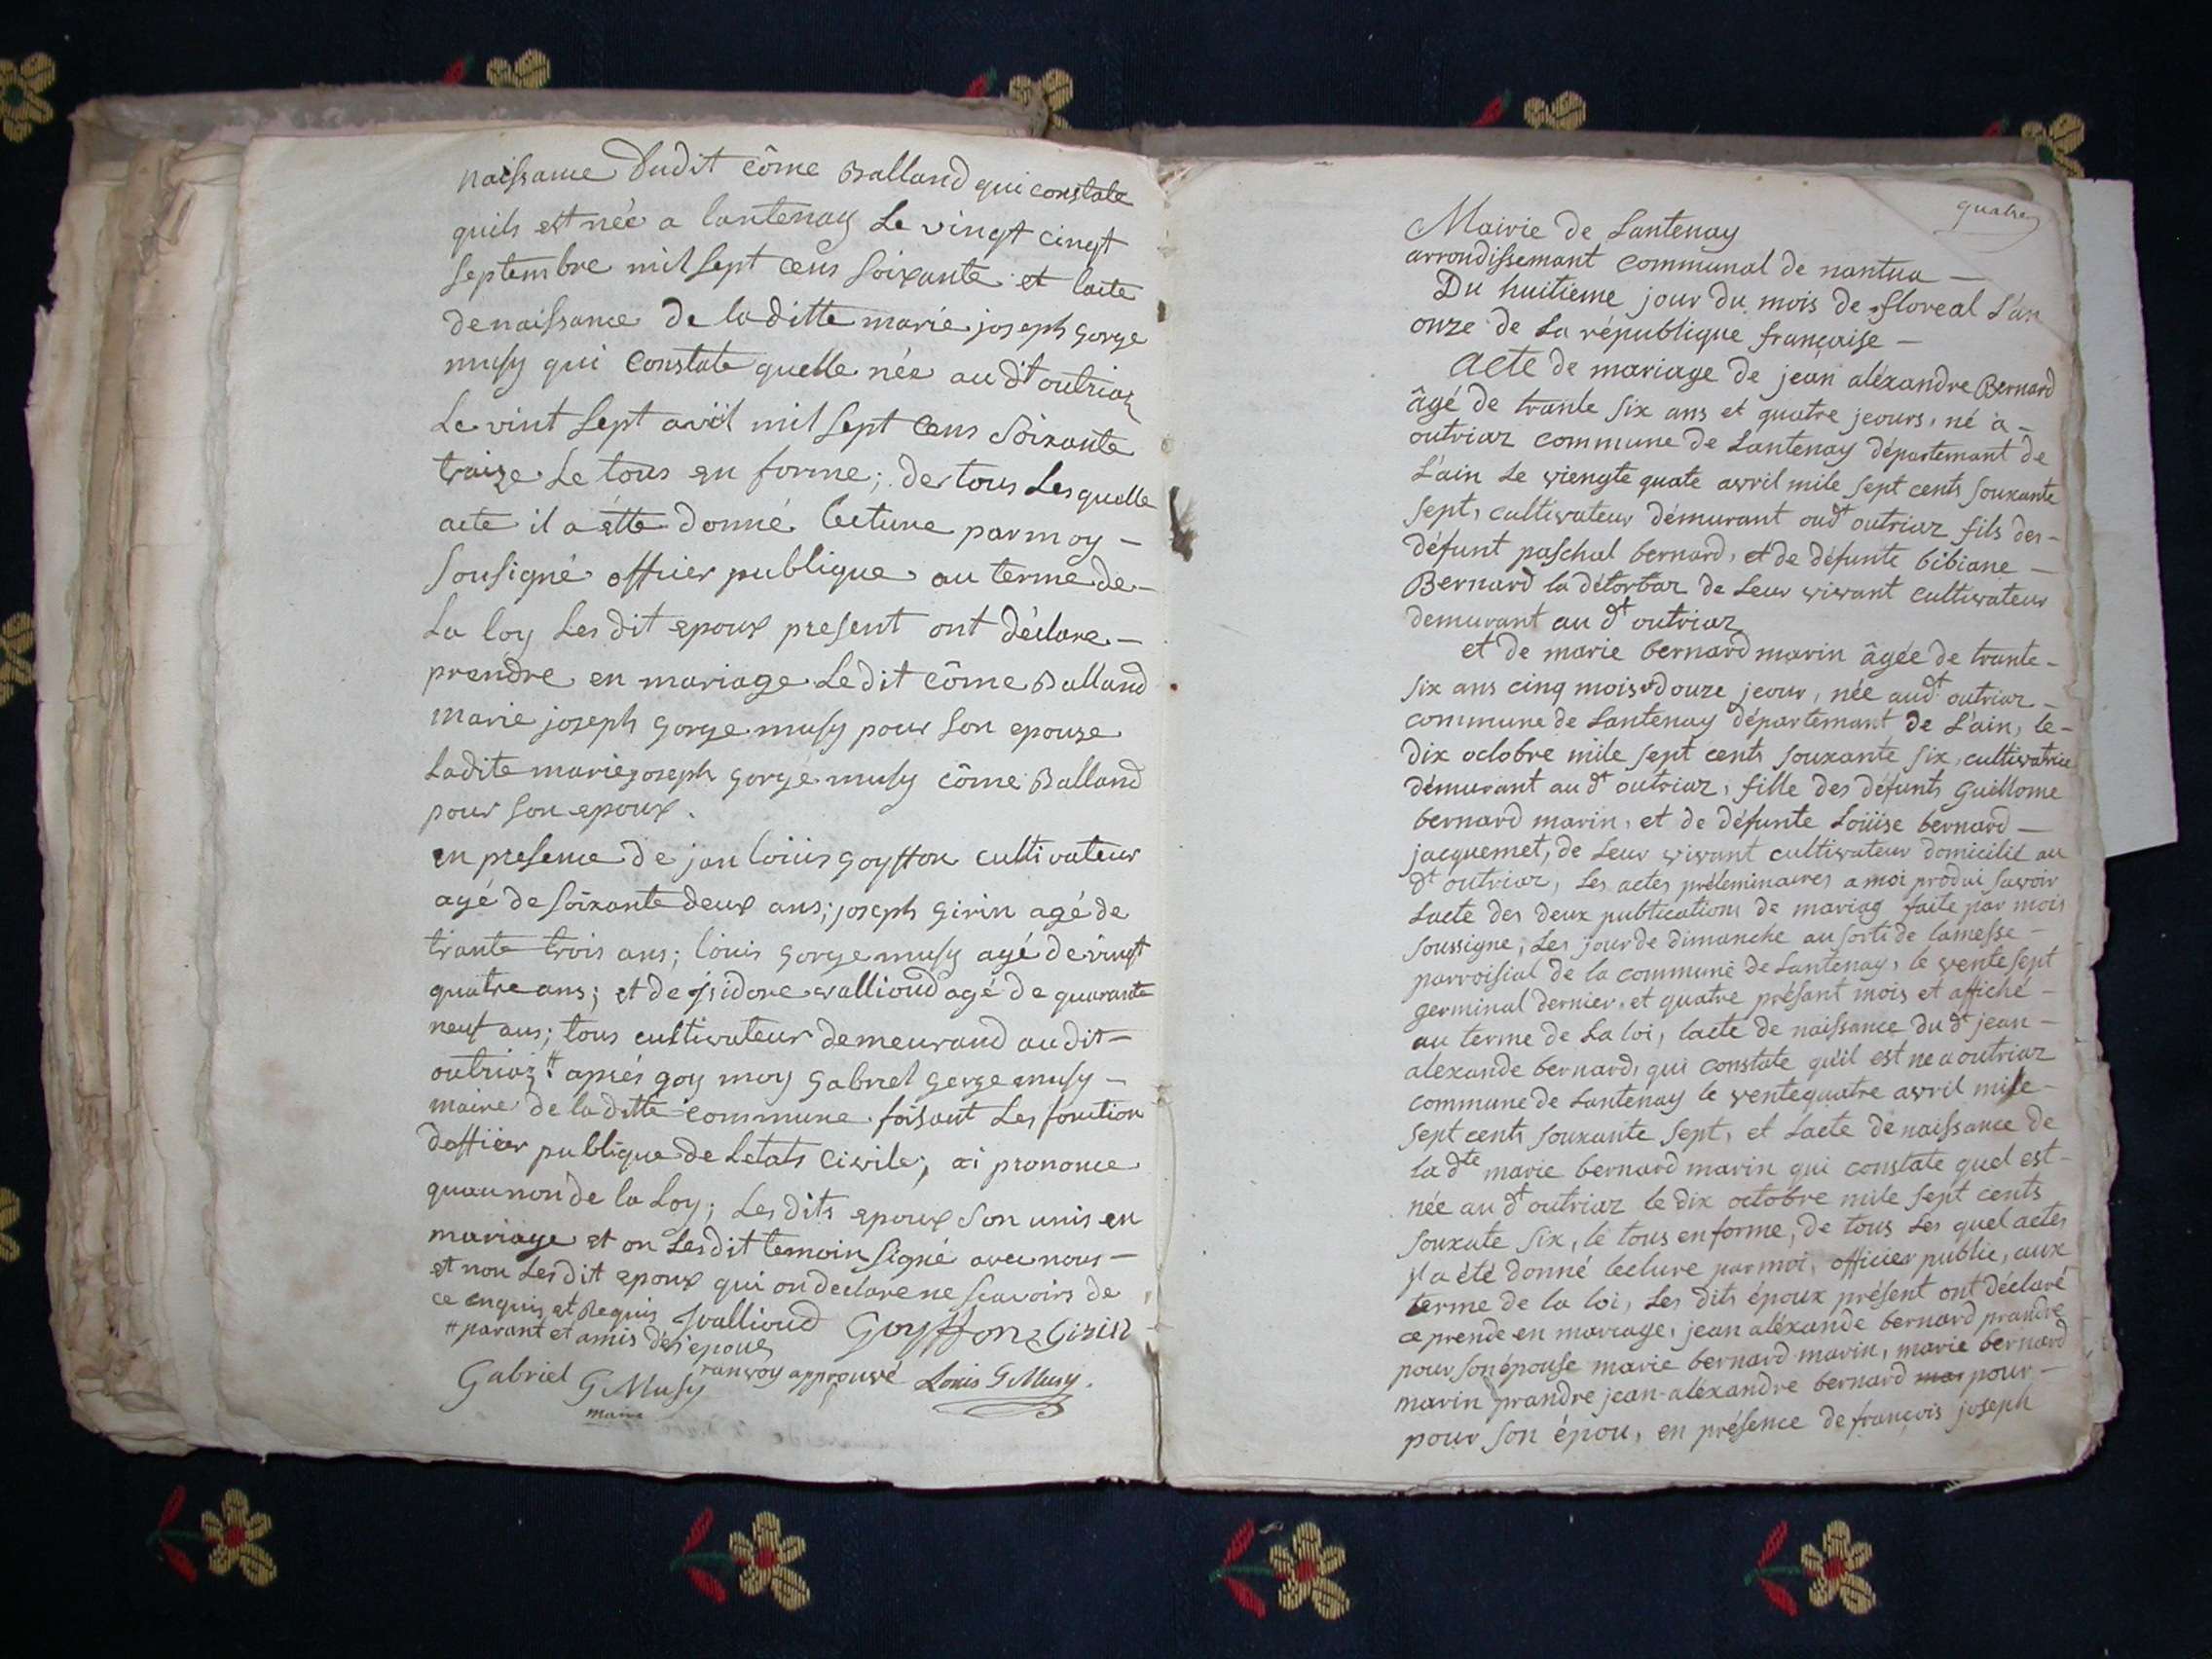 naissance dudit côme Balland qui constate
quils est née a lantenay le vingt cinqt
septembre mil sept cens soixante et lacte
de naissance de laditte marie joseph gorge
musy qui constate quelle née au dt outriaz
Le vint sept avril mil sept cens soixante
traize le tous en forme; de tous les quelle
acte il a étte donné lecture par moy -
sousigné officier publique au terme de -
La loy les dit epoux present ont déclare -
prendre en mariage le dit côme Balland
marie joseph gorge musy pour son epouze
Ladite marie joseph gorge musy côme Balland
pour son epoux.
en presence de jan loüis goyffon cultivateur
agé de soixante deux ans; joseph girin agé de
trante trois ans; loüis gorge musy agé de vingt
quatre ans; et de jsidore vallioud agé de quarante
neuf ans; tous cultivateur demeurand au dit -
outriaz # après qoy moy gabriel gorge musy -
maire de laditte commune faisant les fonction
dofficier publique de letats civile; ai prononce
quau non de la loy; les dits epoux son unis en
mariage et on les dit temoin signé avec nous -
et non les dit epoux qui on declare ne scavoirs de
ce enquis et Requis Jvallioud Goyffon Girin
# parant et amis des epoux
ranvoy approuvé
Gabriel GMusy Louis GMusy.
maire
quatre
Mairie de Lantenay
arrondissemant communal de nantua -
Du huitieme jour du mois de floreal L'an
onze de La république française -
Acte de mariage de jean aléxandre Bernard
âgé de trante six ans et quatre jeours, né à -
outriaz commune de Lantenay départemant de
L'ain Le viengte quate avril mile sept cents souxante
sept, cultivateur démurant oudt outriaz fils des -
défunt paschal bernard, et de défunte bibiane -
Bernard la détorbaz de Leur vivant cultivateur
demurant au dt outriaz
et de marie bernard marin âgée de trante -
six ans cinq mois et douze jeour, née audt outriaz -
commune de Lantenay départemant de L'ain, le -
dix octobre mile sept cents souxante six, cultivatrice
démurant au dt outriaz, fille des défunts Guillome
bernard marin, et de défunte Loüise bernard -
jacquemet, de Leur vivant cultivateur domicilié au
dt outriaz, Les actes préleminaires a moi produi savoir
Lacte des deux publications de mariag faite par mois
soussigne, Les jour de dimanche au sorti de lamesse -
parroisial de la commune de Lantenay, le vente sept
germinal dernier, et quatre présant mois et affiché -
au terme de La loi, lacte de naissance du dt jean -
alexande bernard, qui constate qu'il est ne a outriaz
commune de Lantenay le vente quatre avril mile -
sept cents souxante sept, et Lacte de naissance de
la dte marie bernard marin qui constate quel est -
née au dt outriaz le dix octobre mile sept cents
souxate six, le tous en forme, de tous Les quel actes
jl a été donné lecture par moi, officier public, aux
terme de la loi, Les dits époux présent ont déclaré
ce prende en mariage, jean aléxande bernard prandre
pour son épouse marie bernard marin, marie bernard
marin prandre jean-aléxandre bernard mar pour -
pour son épou, en présence de françois joseph